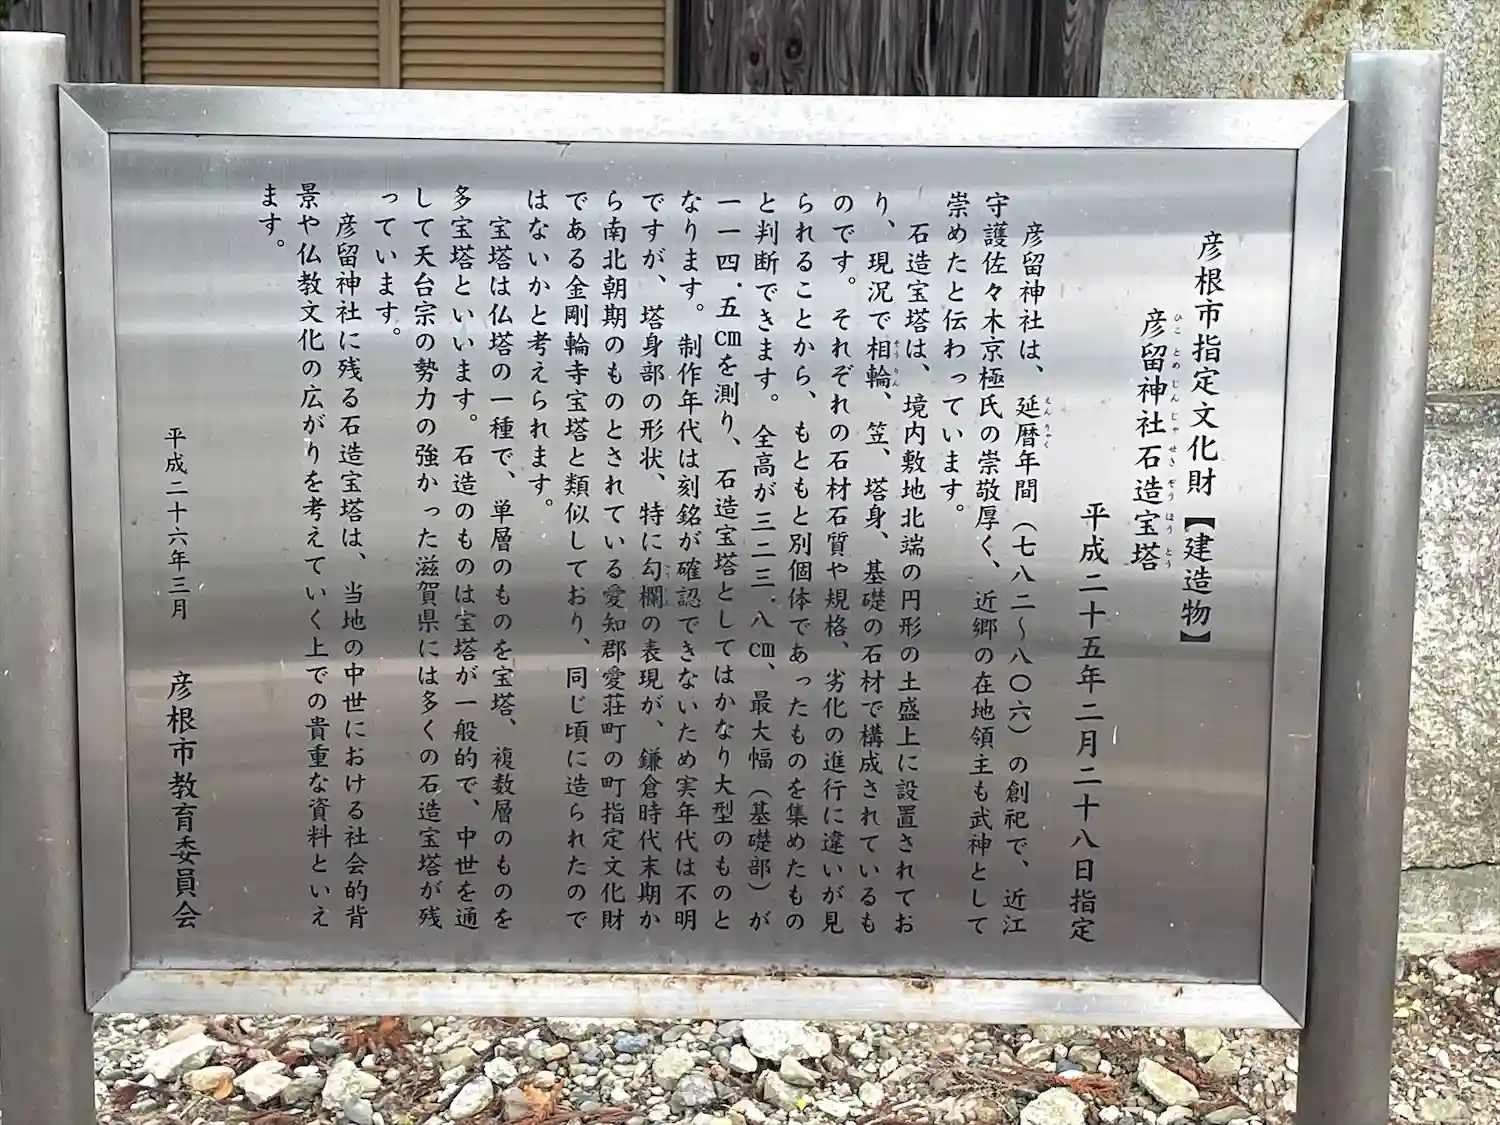 彦根市指定文化財【建造物】
彦留神社石造宝塔
ひことめじんじゃせきぞうほうとう
平成二十五年二月二十八日指定
彦留神社は、延暦年間（七八二～八〇六）の創祀で、近江
えんりゃく
守護佐々木京極氏の崇敬厚く、近郷の在地領主も武神として
崇めたと伝わっています。
石造宝塔は、境内敷地北端の円形の土盛上に設置されてお
り、現況で相輪、笠、塔身、基礎の石材で構成されているも
そうりん
のです。それぞれの石材石質や規格、劣化の進行に違いが見
られることから、もともと別個体であったものを集めたもの
と判断できます。全高が三二三.八㎝、最大幅（基礎部）が
一一四.五㎝を測り、石造宝塔としてはかなり大型のものと
なります。制作年代は刻銘が確認できないため実年代は不明
ですが、塔身部の形状、特に勾欄の表現が、鎌倉時代末期か
ら南北朝期のものとされている愛知郡愛荘町の町指定文化財
である金剛輪寺宝塔と類似しており、同じ頃に造られたので
はないかと考えられます。
宝塔は仏塔の一種で、単層のものを宝塔、複数層のものを
多宝塔といいます。石造のものは宝塔が一般的で、中世を通
して天台宗の勢力の強かった滋賀県には多くの石造宝塔が残
っています。
彦留神社に残る石造宝塔は、当地の中世における社会的背
景や仏教文化の広がりを考えていく上での貴重な資料といえ
ます。
平成二十六年三月　彦根市教育委員会